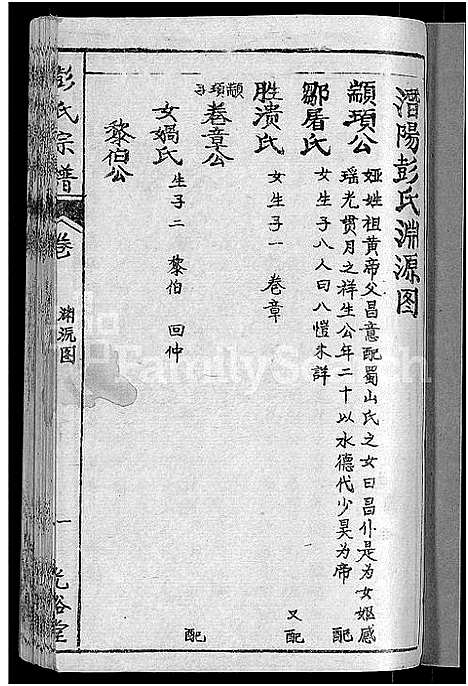 潛陽彭氏淵源图
顓頊公 姬姓祖黄帝父昌意配蜀山氏之女曰昌仆是为女娠感
瑶光贯月之祥生公年二十以水德代少昊为帝 配
鄒屠氏 女生子八人曰八愷未詳 又配
胜溃氏 女生子一 卷章
顓頊子 卷章公 配
女媧氏 生子二 黎伯 回仲
黎伯公
彭氏宗譜 卷 渊源图 一 光裕堂
FamilySearch